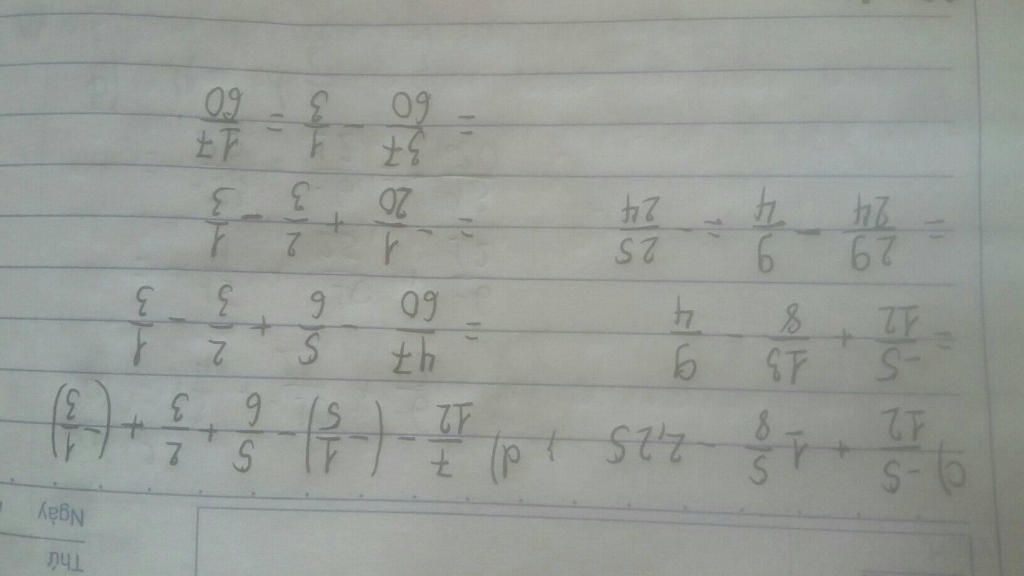 Thứ
Ngày
c) -5/12 + 1 5/8 - 2,25 , d) 7/12 - (-1/5) - 5/6 + 2/3 + (-1/3)
= -5/12 + 13/8 - 9/4 = 47/60 - 5/6 + 2/3 - 1/3
= 29/24 - 9/4 = - 25/24 = - 1/20 + 2/3 - 1/3
= 37/60 - 1/3 = 17/60